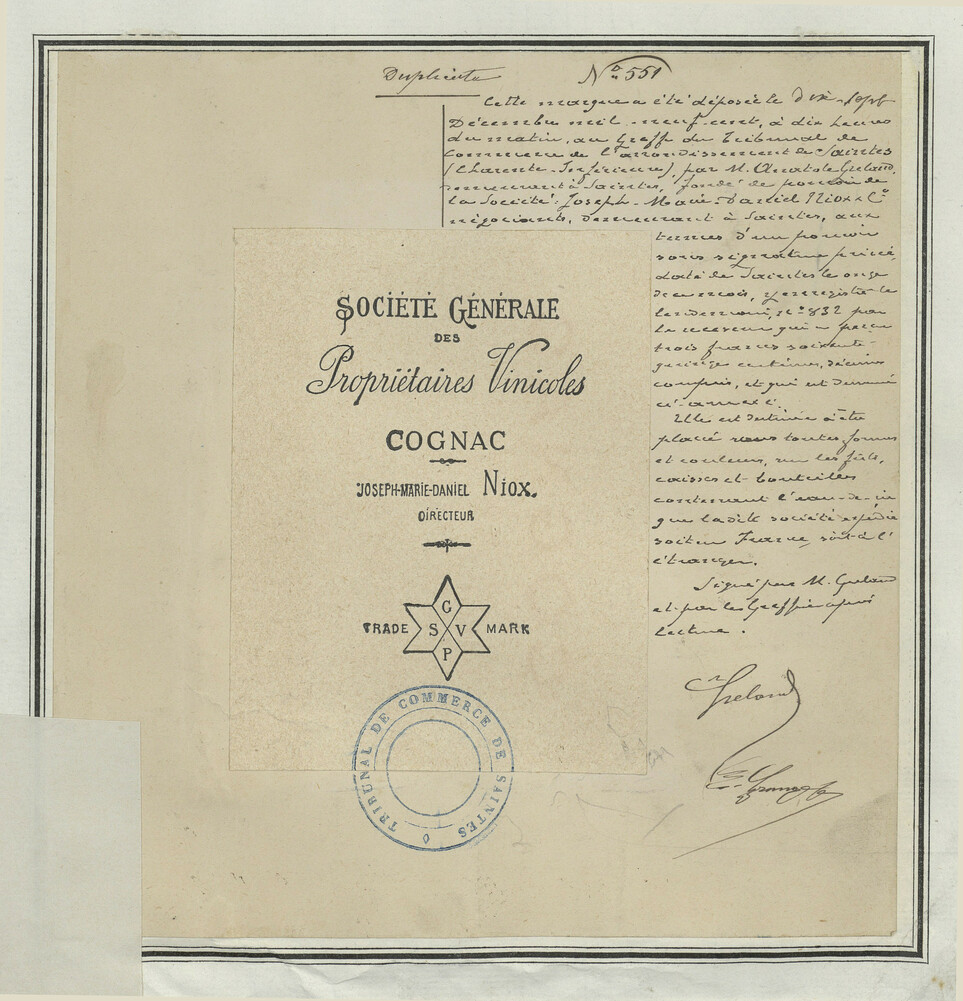 Duplicata
No 551
Cette marque a été déposée le dix-sept
Décembre mil-neuf-cent, à dix heures
du matin, au Greffe du Tribunal de
Commerce de l'arrondissement de Saintes
(Charente-Inférieure), par M. Anatole Greland,
demeurant à Saintes, fondé de pouvoir de
la Société: Joseph-Marie-Daniel Niox & Cie
négociants, demeurant à Saintes, aux
termes d'un pouvoir
sous signature privée,
daté de Saintes le onze
de ce mois, y enregistré le
lendemain, no 832 par
le receveur qui a perçu
trois francs soixante-
quinze centimes, décimes
compris, et qui est demeuré
ci-annexé.
Elle est destinée à être
placée sous toutes formes
et couleurs, sur les fûts,
caisses et bouteilles
contenant l'eau-de-vie
que ladite société expédie
soit en France, soit à l'
étranger.
Signé par M. Greland
et par le Greffier après
lecture.
Greland
SOCIÉTÉ GÉNÉRALE
DES
Propriétaires Vinicoles
COGNAC
JOSEPH-MARIE-DANIEL NIOX.
DIRECTEUR
TRADE MARK
G
S V
P
TRIBUNAL DE COMMERCE DE SAINTES